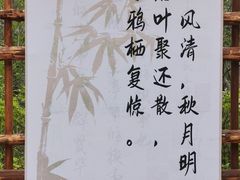 风清，秋月明
叶聚还散，
鸦栖复惊。